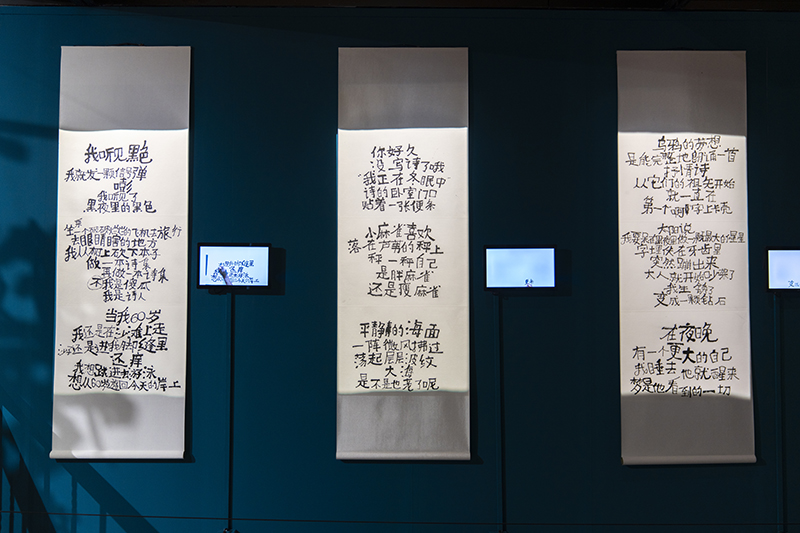 我听见黑色
我就发一颗信号弹
嘭
我听见了
黑夜里的黑色
坐的飞机去旅行
去眼睛瞎的地方
我从树上砍下本子
做一本诗集
再做一本诗集
不我是傻瓜
我是诗人
当我60岁
我还是在沙滩上走
沙子还是进我脚缝里
还痒
我想跃进去游泳
想从60岁游回今天的岸上
你好久
没写诗了哦
"我正在冬眠中"
诗的卧室门口
贴着一张便条
小麻雀喜欢
落在芦苇的秤上
秤一秤自己
是胖麻雀
还是瘦麻雀
平静的海面
一阵微风拂过
荡起层层波纹
大海
是不是也老了呢
乌鸦的梦想
是能完整地朗诵一首
抒情诗
从它们的祖先开始
就一直在
第一个啊字上卡壳
大白说
我要在黑夜里做一颗最大的星星
突然蹦出来
大人就开始少亲了
我生锈了
变成一颗钻石
在夜晚
有一个更大的自己
我睡去他就醒来
梦是他看到的一切